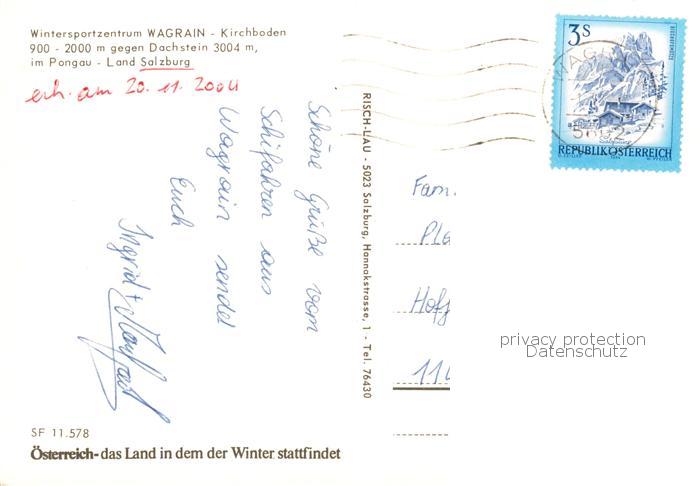 Wintersportzentrum WAGRAIN - Kirchboden
900 - 2000 m gegen Dachstein 3004 m,
im Pongau - Land Salzburg
erh. am 20. 11. 2004
Schöne Grüße vom
Schifahren aus
Wagrain sendet
Euch
Ingrid + Manfred
SF 11.578
Österreich-das Land in dem der Winter stattfindet
RISCH-LAU - 5023 Salzburg, Hannakstrasse, 1 - Tel. 76430
3S
WAGRAIN
REPUBLIK ÖSTERREICH
Fam.
Pla
Hof
privacy protection
Datenschutz